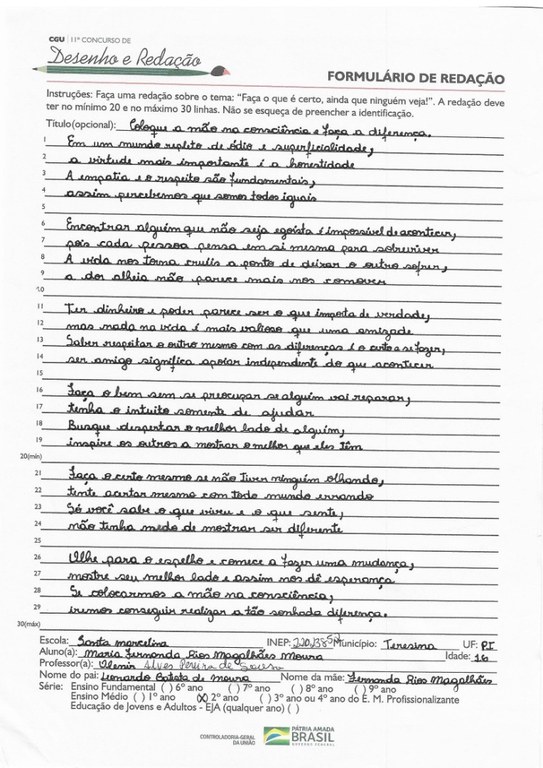 CGU | 11º CONCURSO DE
Desenho e Redação
FORMULÁRIO DE REDAÇÃO
Instruções: Faça uma redação sobre o tema: "Faça o que é certo, ainda que ninguém veja!". A redação deve
ter no mínimo 20 e no máximo 30 linhas. Não se esqueça de preencher a identificação.
Título(opcional): Coloque a mão na consciência e faça a diferença.
1 Em um mundo repleto de ódio e superficialidade,
2 a virtude mais importante é a honestidade
3 A empatia e o respeito são fundamentais,
4 assim percebemos que somos todos iguais
5
6 Encontrar alguém que não seja egoísta é impossível de acontecer,
7 pois cada pessoa pensa em si mesma para sobreviver
8 A vida nos torna cruéis a ponto de deixar o outro sofrer,
9 a dor alheia não parece mais nos comover
10
11 Ter dinheiro e poder parece ser o que importa de verdade,
12 mas nada na vida é mais valioso que uma amizade
13 Saber respeitar o outro mesmo com as diferenças é o certo a se fazer,
14 ser amigo significa apoiar independente do que acontecer
15
16 Faça o bem sem se preocupar se alguém vai reparar,
17 tenha o intuito somente de ajudar
18 Busque despertar o melhor lado de alguém,
19 inspire os outros a mostrar o melhor que eles têm
20(mín)
21 Faça o certo mesmo se não tiver ninguém olhando,
22 tente acertar mesmo com todo mundo errando
23 Só você sabe o que viveu e o que sente,
24 não tenha medo de mostrar ser diferente
25
26 Olhe para o espelho e comece a fazer uma mudança,
27 mostre seu melhor lado e assim nos dê esperança
28 Se colocarmos a mão na consciência,
29 iremos conseguir realizar a tão sonhada diferença.
30(máx)
Escola: Santa marcelina INEP: Município: Teresina UF: PI
Aluno(a): Maria Fernanda Rios Magalhães Moura Idade: 16
Professor(a): Alves Pereira de
Nome do pai: Leonardo Batista de moura Nome da mãe: Fernanda Rios Magalhães
Série: Ensino Fundamental ( ) 6º ano ( ) 7º ano ( ) 8º ano ( ) 9º ano
Ensino Médio ( ) 1º ano (X) 2º ano ( ) 3º ano ou 4º ano do E. M. Profissionalizante
Educação de Jovens e Adultos - EJA (qualquer ano) ( )
CONTROLADORIA-GERAL
DA UNIÃO
PÁTRIA AMADA
BRASIL
GOVERNO FEDERAL